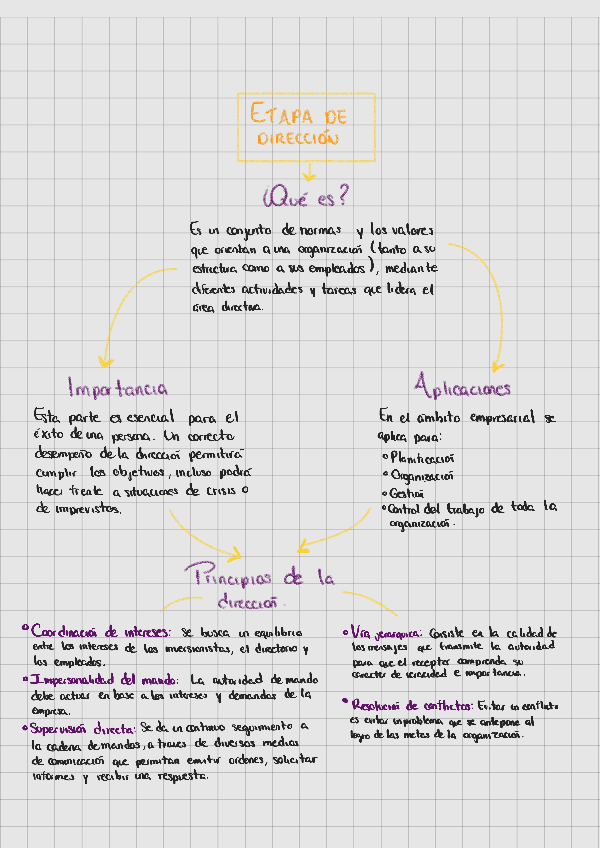 ETAPA DE
DIRECCIÓN
¿Qué es?
Es un conjunto de normas y los valores
que orientan a una organización (tanto a su
estructura como a sus empleados), mediante
diferentes actividades y tareas que lidera el
área directiva.
Importancia
Esta parte es esencial para el
éxito de una persona. Un correcto
desempeño de la dirección permitirá
cumplir los objetivos, incluso podrá
hacer frente a situaciones de crisis o
de imprevistos.
Aplicaciones
En el ámbito empresarial se
aplica para:
• Planificación
• Organización
• Gestión
• Control del trabajo de toda la
organización.
Principios de la
dirección.
• Coordinación de intereses: Se busca un equilibrio
entre los intereses de los inversionistas, el directorio y
los empleados.
• Impersonalidad del mando: La autoridad de mando
debe actuar en base a los intereses y demandas de la
empresa.
• Supervisión directa: Se da un continuo seguimiento a
la cadena de mandos, a traves de diversos medios
de comunicación que permitan emitir ordenes, solicitar
informes y recibir una respuesta.
• Vía jerarquica: Consiste en la calidad de
los mensajes que transmite la autoridad
para que el receptor comprenda su
caracter de veracidad e importancia.
• Resolución de conflictos: Evitar un conflicto
es evitar un problema que se antepone al
logro de las metas de la organización.